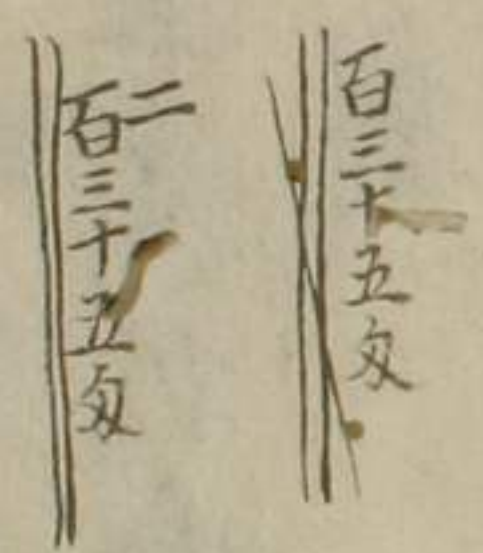 百三十五匁
二百三十五匁